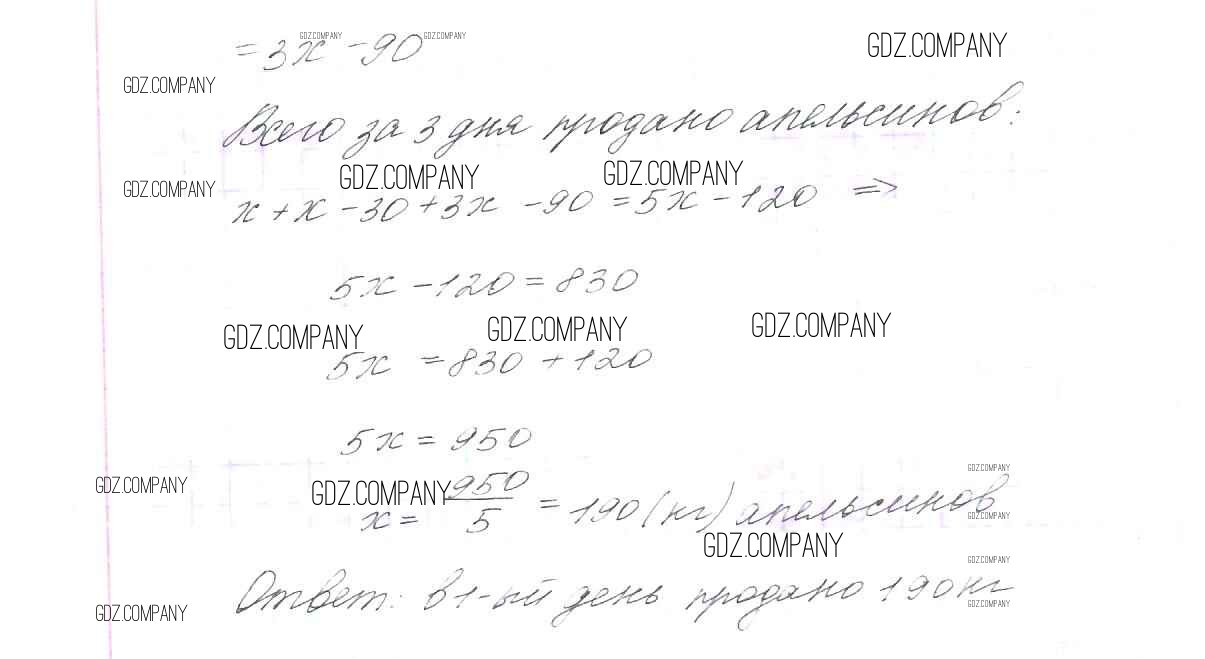 GDZ.COMPANY GDZ.COMPANY
= 3x - 90 GDZ.COMPANY
GDZ.COMPANY
Всего за 3 дня продано апельсинов:
GDZ.COMPANY GDZ.COMPANY GDZ.COMPANY
x + x - 30 + 3x - 90 = 5x - 120 =>
5x - 120 = 830
GDZ.COMPANY GDZ.COMPANY GDZ.COMPANY
5x = 830 + 120
5x = 950
GDZ.COMPANY
GDZ.COMPANY GDZ.COMPANY
x = 950/5 = 190 (кг) апельсинов
GDZ.COMPANY
GDZ.COMPANY
GDZ.COMPANY
Ответ: в 1-ый день продано 190 кг
GDZ.COMPANY GDZ.COMPANY